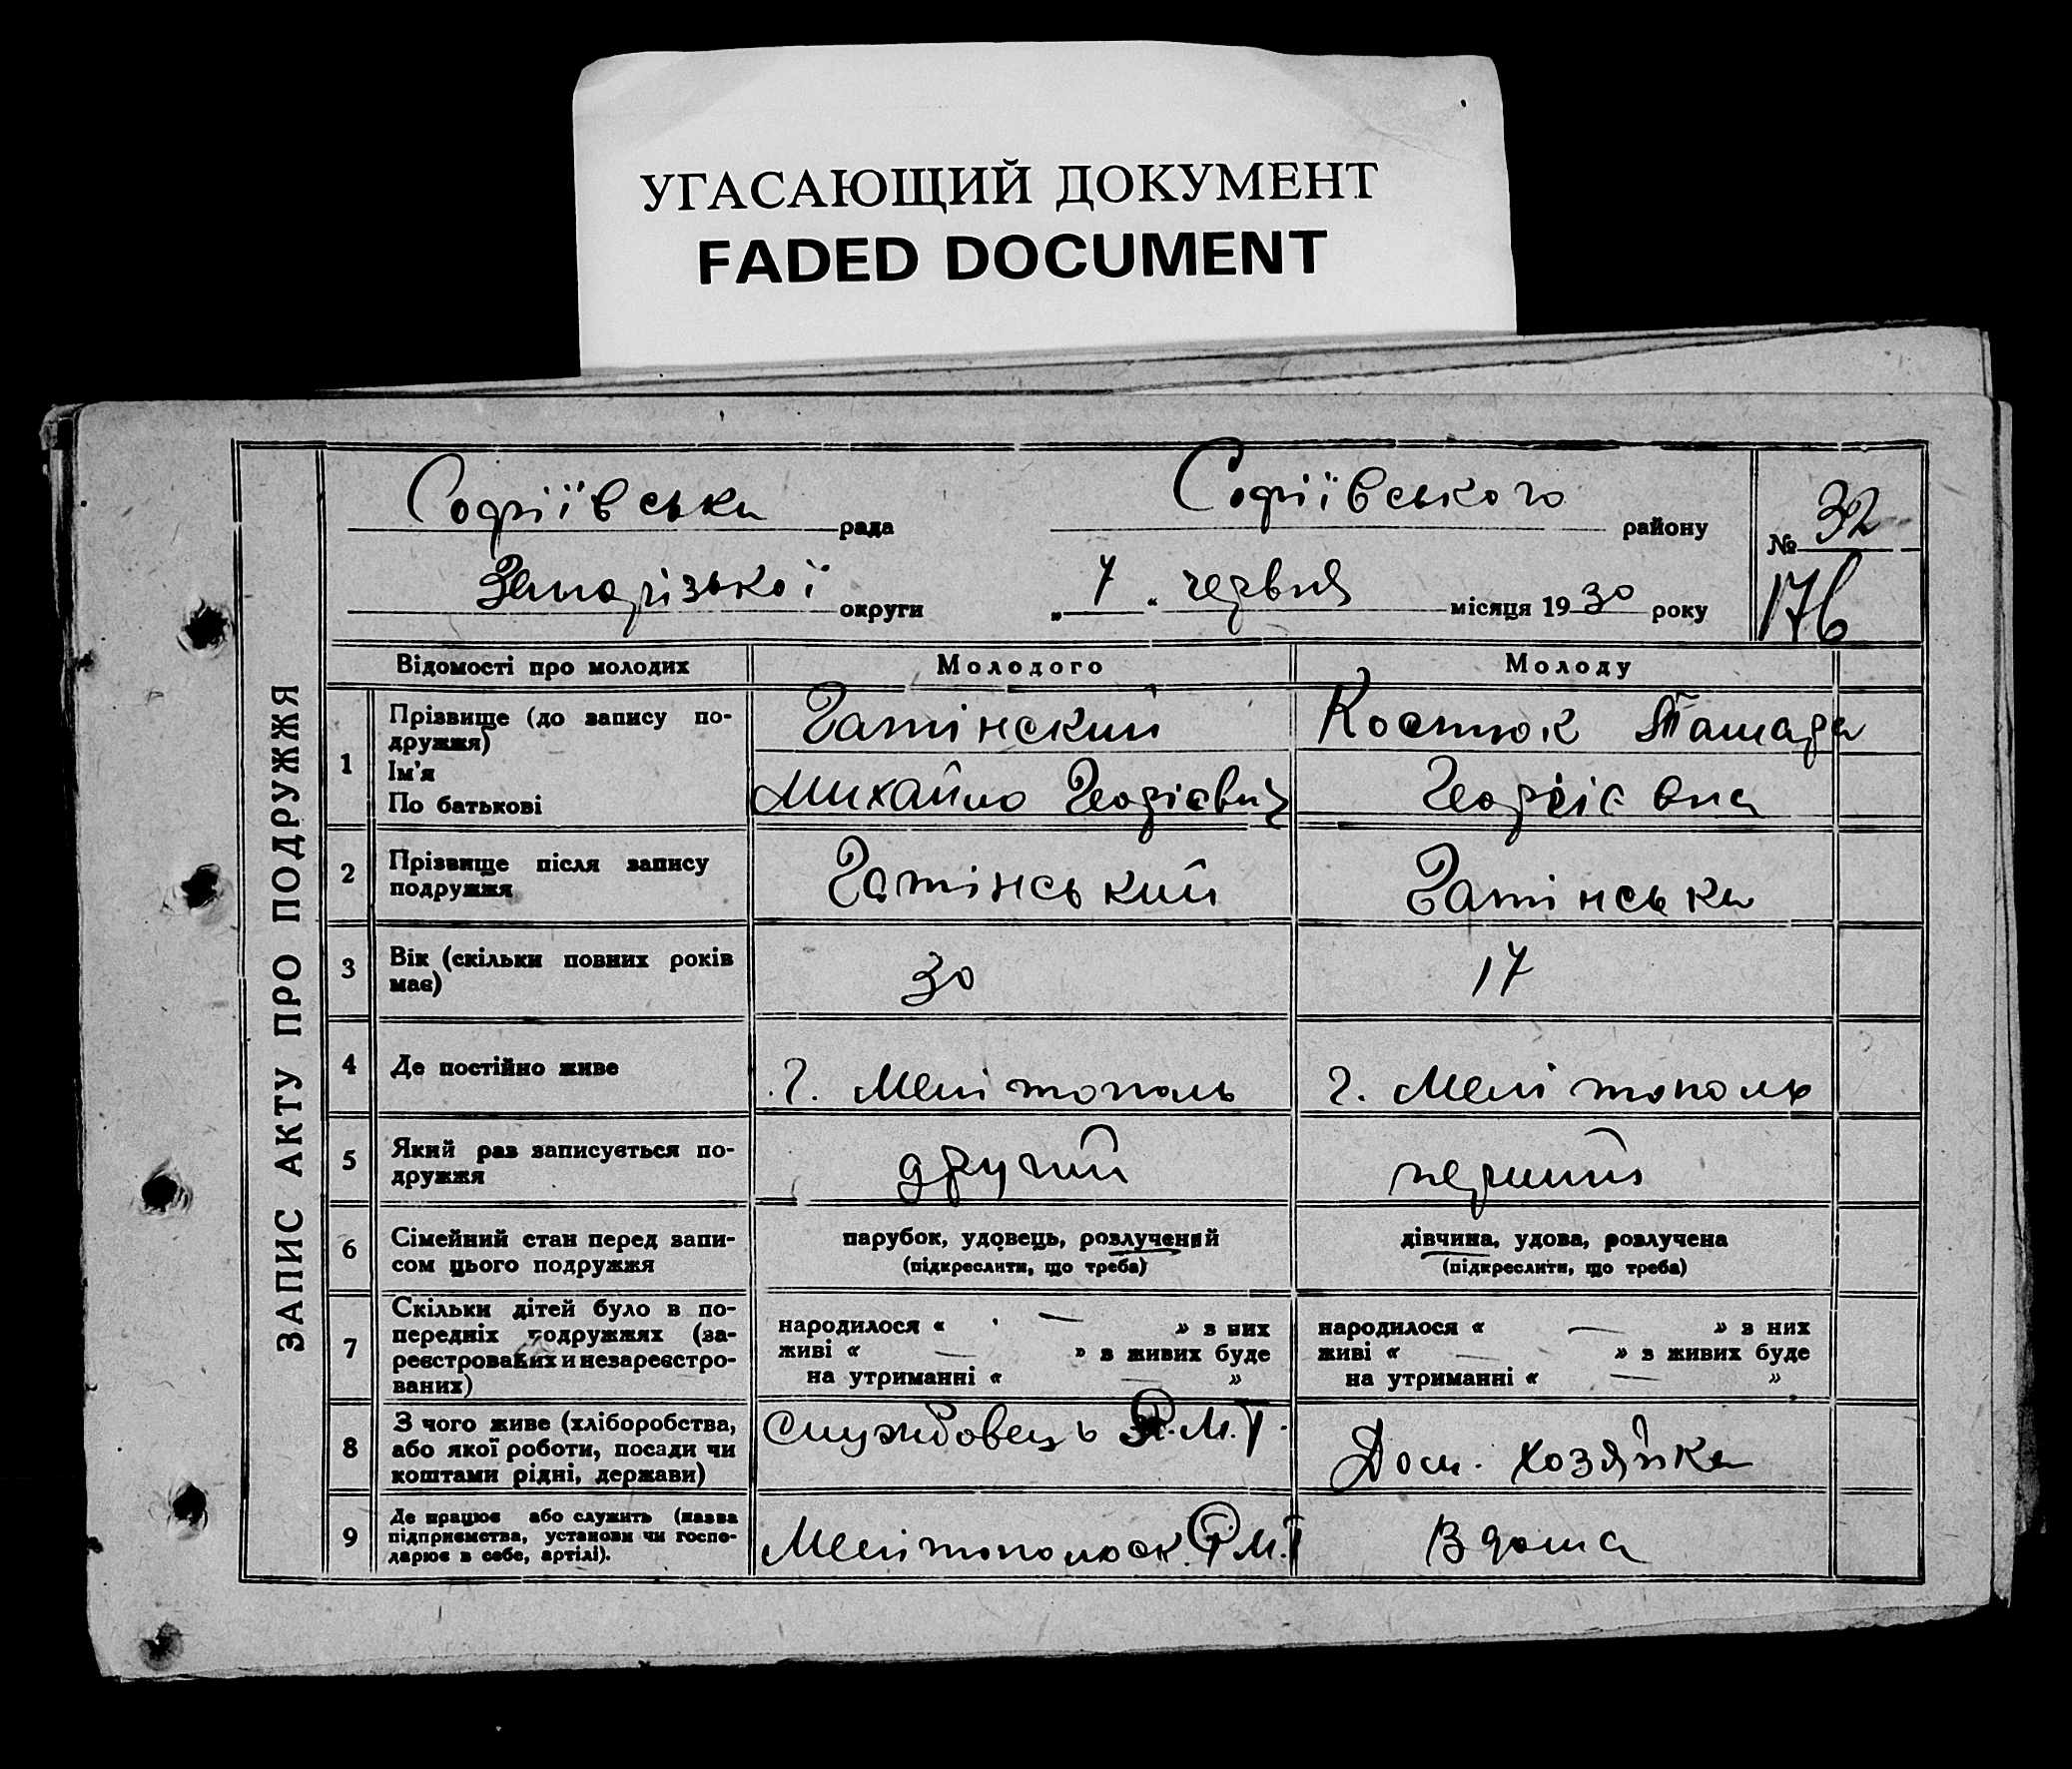 УГАСАЮЩИЙ ДОКУМЕНТ
FADED DOCUMENT
ЗАПИС АКТУ ПРО ПОДРУЖЖЯ
Софіївська рада Софіївського району № 32
Запорізької округи „ 7 “ червня місяця 19 30 року 176
Відомості про молодих Молодого Молоду
1 Прізвище (до запису по-
дружжя)
Ім'я
По батькові
Гатінский
Михайло Георгієвич
Костюк Тамара
Георгієвна
2 Прізвище після запису
подружжя
Гатінський
Гатінська
3 Вік (скільки повних років
має)
30
17
4 Де постійно живе
г. Мелітополь
г. Мелітополь
5 Який раз записується по-
дружжя
другий
перший
6 Сімейний стан перед запи-
сом цього подружжя
парубок, удовець, розлучений
(підкреслити, що треба)
дівчина, удова, розлучена
(підкреслити, що треба)
7 Скільки дітей було в по-
передніх подружжях (за-
реєстрованих и незареєстро-
ваних)
народилося « — » з них
живі « — » з живих буде
на утриманні « — »
народилося « — » з них
живі « — » з живих буде
на утриманні « — »
8 З чого живе (хліборобства,
або якої роботи, посади чи
коштами рідні, держави)
Службовець Р.М.Т.
Дом. хозяйка
9 Де працює або служить (назва
підприємства, установи чи госпо-
дарює в себе, артілі).
Мелітопольск. Р.М.Т
Вдома